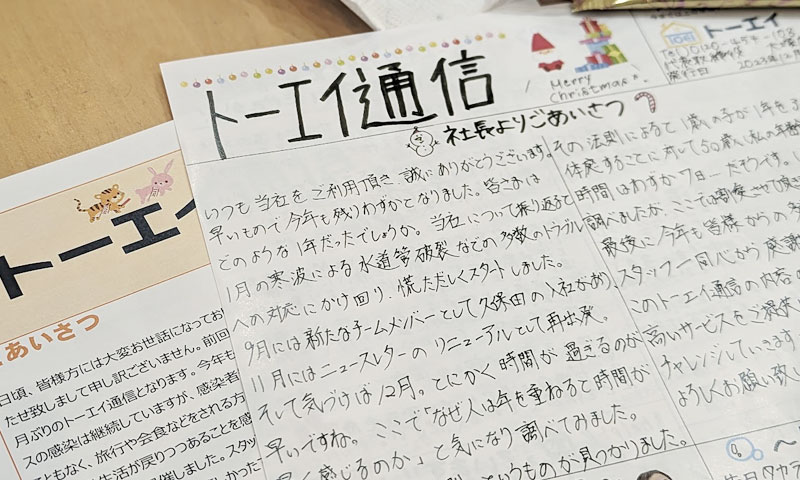 トーエイ通信
Merry
Christmas
トーエイ
社長よりごあいさつ
いつも当社をご利用頂き、誠にありがとうございます。
早いもので今年も残りわずかとなりました。皆さまは
どのような1年だったでしょうか。当社について振り返ると
1月の寒波による水道管破裂などの多数のトラブル
への対応にかけ回り、慌ただしくスタートしました。
9月には新たなチームメンバーとして久保田の入社があり、
11月にはニュースレターのリニューアルとして再出発。
そして気づけば12月。とにかく時間が過ぎるのが
早いですね。ここで「なぜ人は年を重ねると時間が
感じるのか」と気になり調べてみました。
というものが見つかりました。
その法則によると1歳の子が1年を
体験することに対して50歳の私の年齢
時間はわずか7日
調べましたが、ここでは
最後に今年も皆様からの多
スタッフ一同心から感謝
このトーエイ通信の内容の
高いサービスをご提供
チャレンジしていきます
よろしくお願い致し
トーエイ
あいさつ
日頃、皆様方には大変お世話になってお
たせ致しまして申し訳ございません。前回
月ぶりのトーエイ通信となります。今年も
スの感染は継続していますが、感染者
こともなく、旅行や会食などをされる方
生活が戻りつつあることを感
開催しました。スタッ